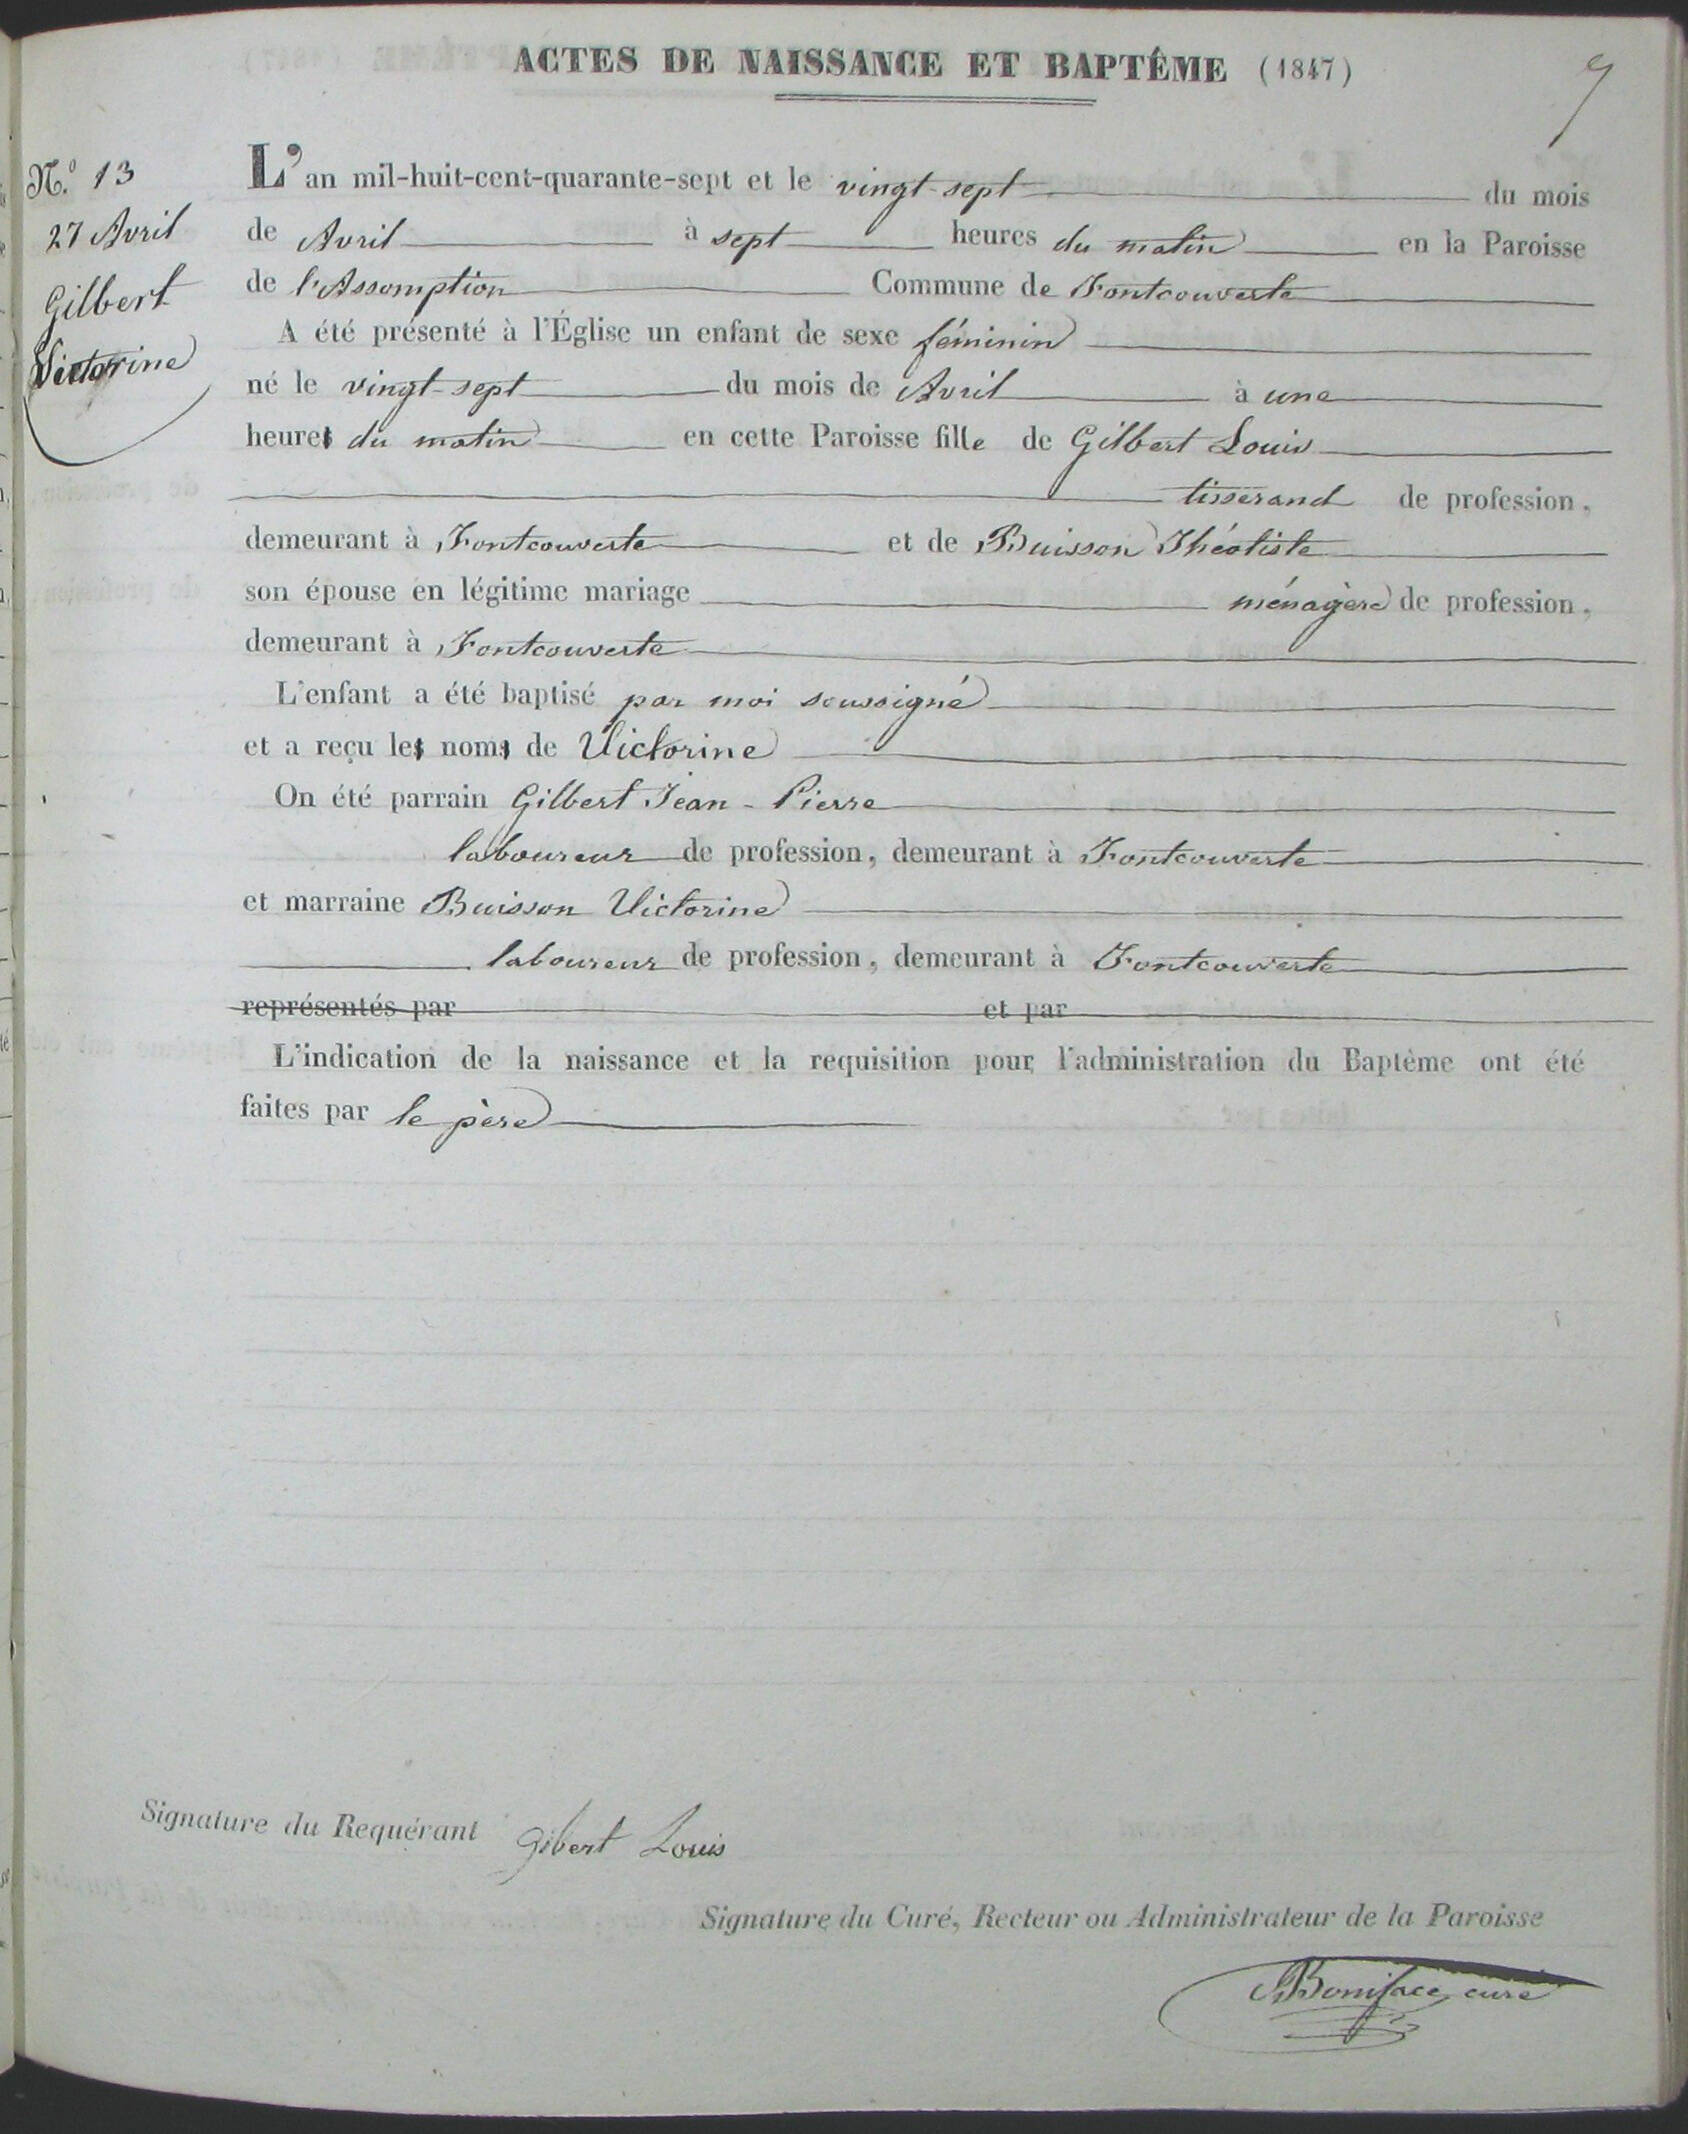 ACTES DE NAISSANCE ET BAPTÊME (1847)
9
N.° 13
27 Avril
Gilbert
Victorine
L'an mil-huit-cent-quarante-sept et le vingt-sept du mois
de Avril à sept heures du matin en la Paroisse
de l'Assomption Commune de Fontcouverte
A été présenté à l'Église un enfant de sexe féminin
né le vingt-sept du mois de Avril à une
heure du matin en cette Paroisse fille de Gilbert Louis
tisserand de profession,
demeurant à Fontcouverte et de Buisson Théotiste
son épouse en légitime mariage ménagère de profession,
demeurant à Fontcouverte
L'enfant a été baptisé par moi soussigné
et a reçu le nom de Victorine
On été parrain Gilbert Jean-Pierre
laboureur de profession, demeurant à Fontcouverte
et marraine Buisson Victorine
laboureur de profession, demeurant à Fontcouverte
représentés par et par
L'indication de la naissance et la requisition pour l'administration du Baptême ont été
faites par le père
Signature du Requérant Gibert Louis
Signature du Curé, Recteur ou Administrateur de la Paroisse
Boniface curé